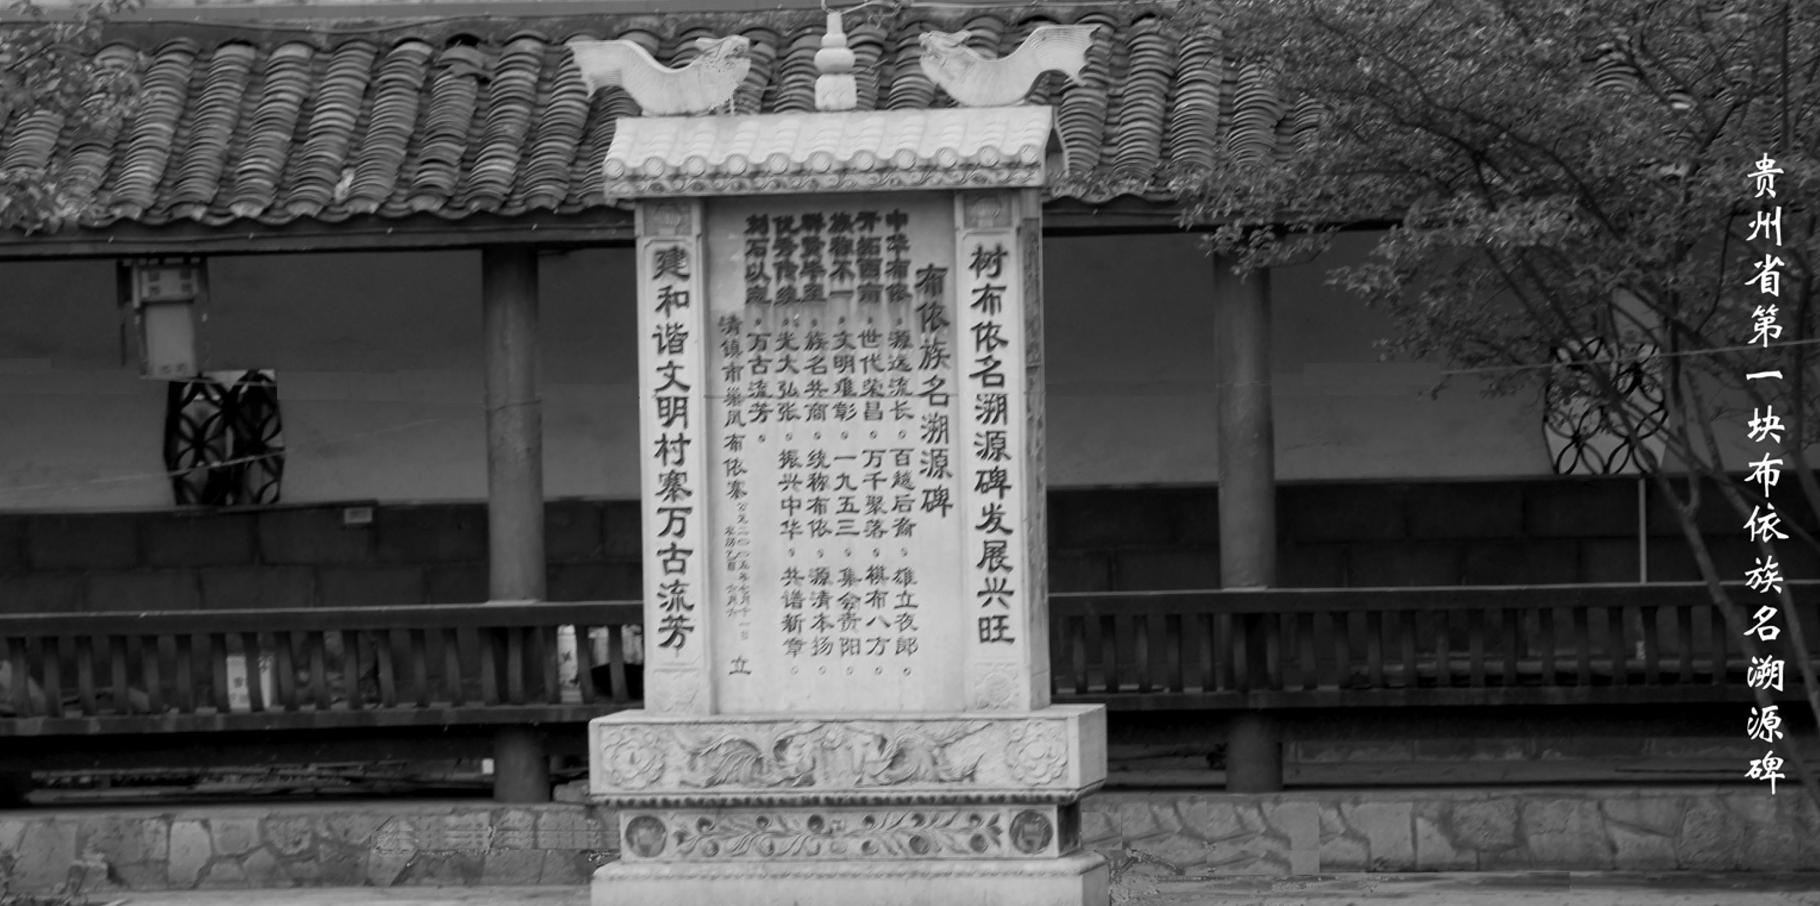 贵州省第一块布依族名溯源碑
树布依名溯源碑发展兴旺
布依族名溯源碑
中华布依，源远流长。百越后裔，雄立夜郎。
开拓西南，世代荣昌。万千聚落，棋布八方。
族称不一，文明难彰。一九五三，集会贵阳。
群贤毕至，族名共商。统称布依，源清本扬。
优秀传统，光大弘张。振兴中华，共谱新章。
刻石以志，万古流芳。
清镇市巢凤布依寨
公元二〇〇五年七月十一日
农历乙酉 六月六
立
建和谐文明村寨万古流芳